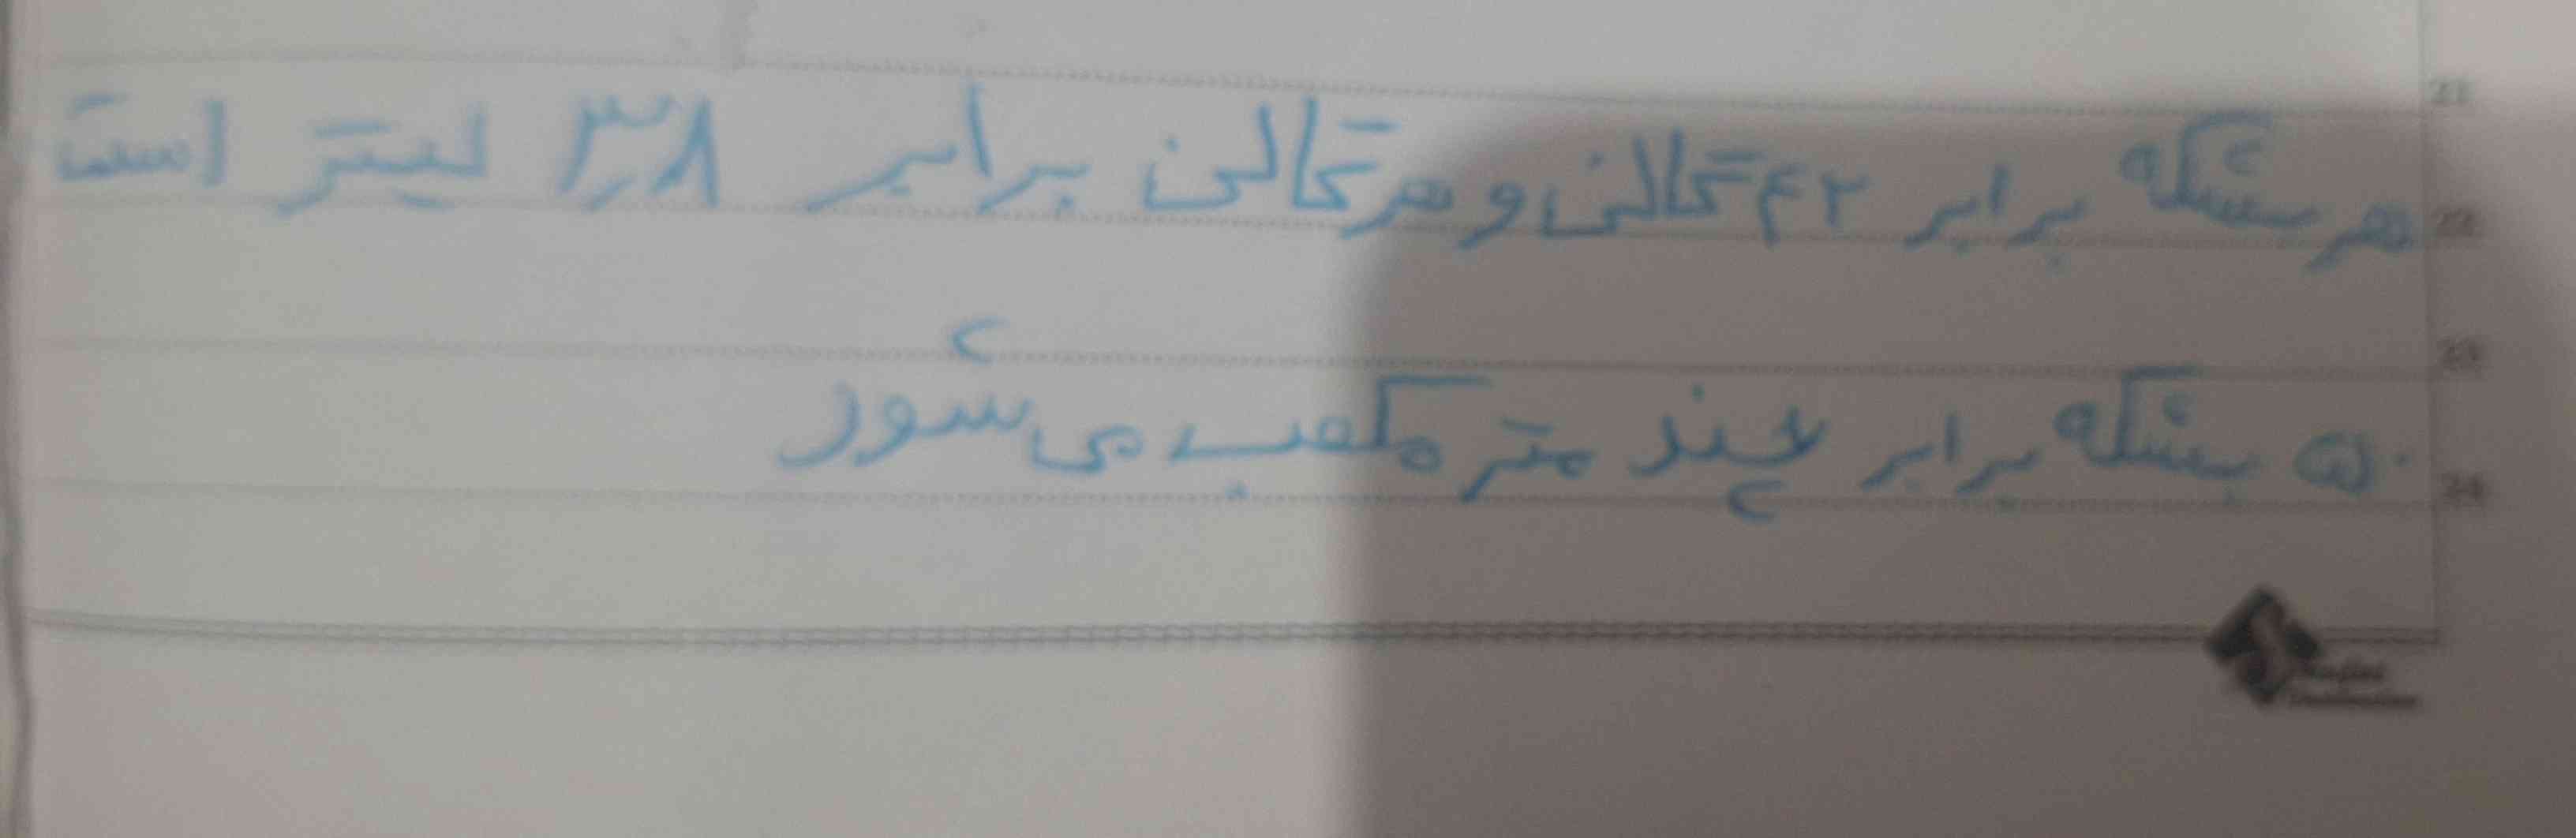 21
هر بشکه برابر ۴۲ گالن و هر گالن برابر ۳٫۸ لیتر است
22
23
۵۰ بشکه برابر چند متر مکعب می شود
24